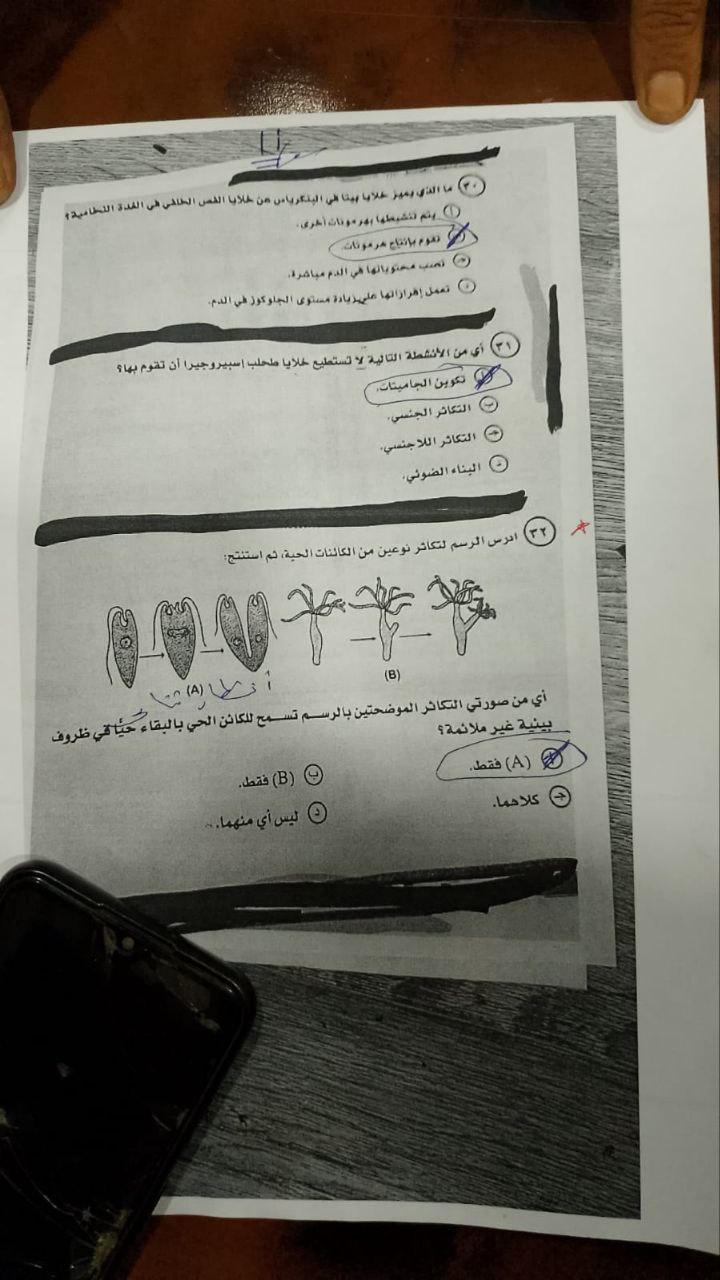 ٣٠ ما الذي يميز خلايا بيتا في البنكرياس عن خلايا الفص الخلفي في الغدة النخامية؟
أ يتم تنشيطها بهرمونات أخرى.
ب تقوم بإنتاج هرمونات.
ج تصب محتوياتها في الدم مباشرة.
د تعمل إفرازاتها على زيادة مستوى الجلوكوز في الدم.
٣١ أي من الأنشطة التالية لا تستطيع خلايا طحلب إسبيروجيرا أن تقوم بها؟
أ تكوين الجاميتات.
ب التكاثر الجنسي.
ج التكاثر اللاجنسي.
د البناء الضوئي.
٣٢ ادرس الرسم لتكاثر نوعين من الكائنات الحية، ثم استنتج:
(A) (B)
أي من صورتي التكاثر الموضحتين بالرسم تسمح للكائن الحي بالبقاء حيًا في ظروف
بيئية غير ملائمة؟
أ (A) فقط. ب (B) فقط.
ج كلاهما. د ليس أي منهما.